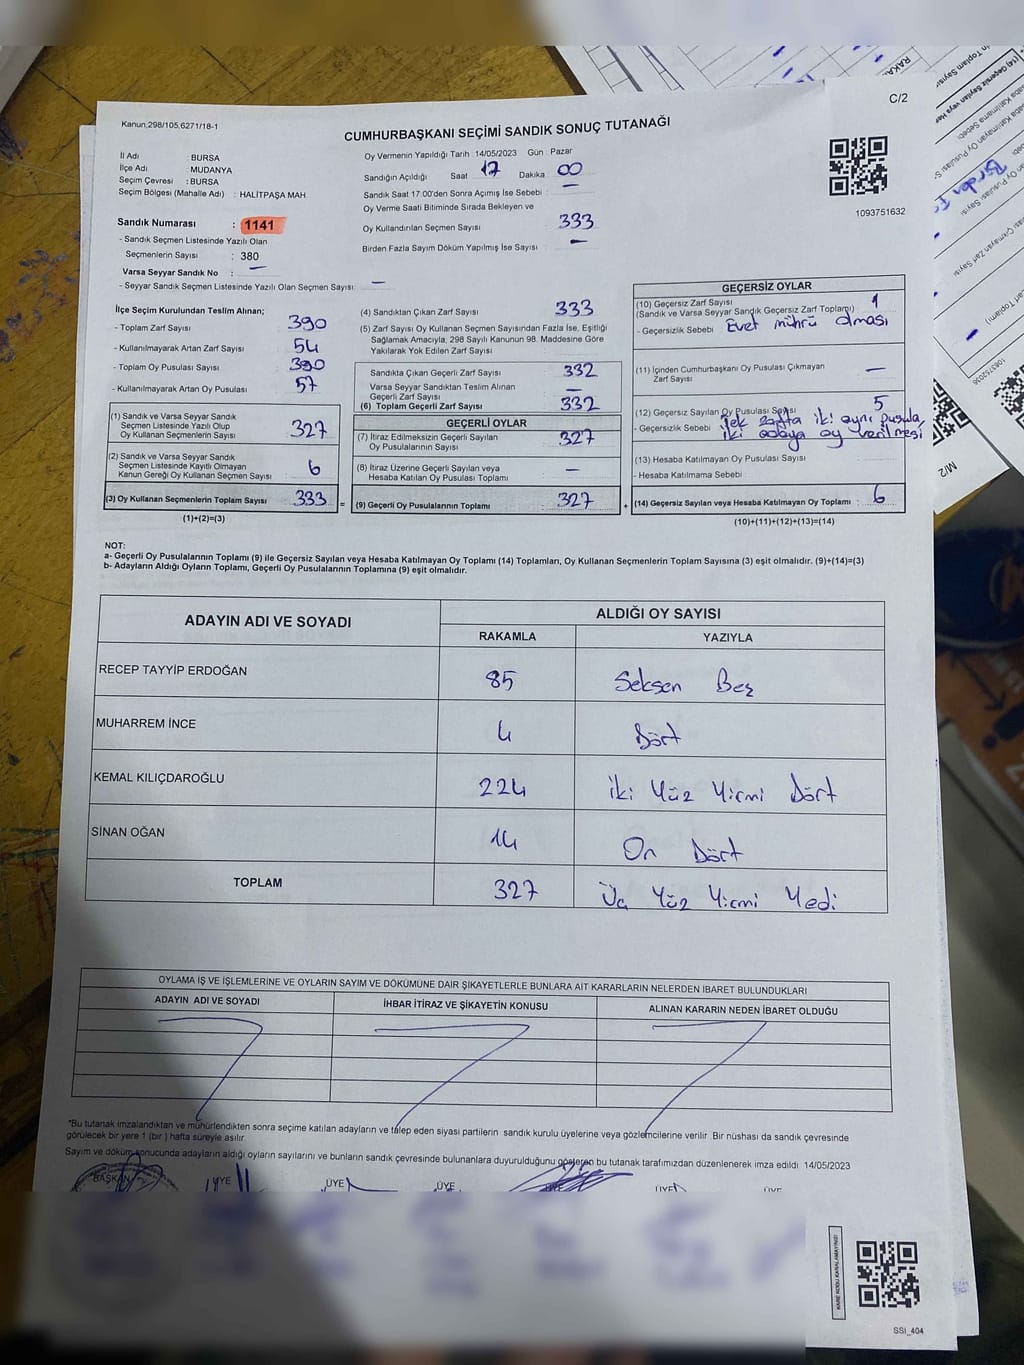 C/2
Kanun,298/105,6271/18-1
CUMHURBAŞKANI SEÇİMİ SANDIK SONUÇ TUTANAĞI
İl Adı : BURSA
İlçe Adı : MUDANYA
Seçim Çevresi : BURSA
Seçim Bölgesi (Mahalle Adı) : HALİTPAŞA MAH
Oy Vermenin Yapıldığı Tarih : 14/05/2023 Gün : Pazar
Sandığın Açıldığı Saat 17 Dakika 00
Sandık Saat 17:00'den Sonra Açımış İse Sebebi : —
Oy Verme Saati Bitiminde Sırada Bekleyen ve
Oy Kullandırılan Seçmen Sayısı : 333
Birden Fazla Sayım Döküm Yapılmış İse Sayısı : —
1093751632
Sandık Numarası : 1141
- Sandık Seçmen Listesinde Yazılı Olan
Seçmenlerin Sayısı : 380
Varsa Seyyar Sandık No : —
- Seyyar Sandık Seçmen Listesinde Yazılı Olan Seçmen Sayısı: —
İlçe Seçim Kurulundan Teslim Alınan;
- Toplam Zarf Sayısı : 390
- Kullanılmayarak Artan Zarf Sayısı : 54
- Toplam Oy Pusulası Sayısı : 390
- Kullanılmayarak Artan Oy Pusulası : 57
(1) Sandık ve Varsa Seyyar Sandık
Seçmen Listesinde Yazılı Olup
Oy Kullanan Seçmenlerin Sayısı : 327
(2) Sandık ve Varsa Seyyar Sandık
Seçmen Listesinde Kayıtlı Olmayan
Kanun Gereği Oy Kullanan Seçmen Sayısı : 6
(3) Oy Kullanan Seçmenlerin Toplam Sayısı : 333
(1)+(2)=(3)
(4) Sandıktan Çıkan Zarf Sayısı : 333
(5) Zarf Sayısı Oy Kullanan Seçmen Sayısından Fazla İse, Eşitliği
Sağlamak Amacıyla, 298 Sayılı Kanunun 98. Maddesine Göre
Yakılarak Yok Edilen Zarf Sayısı :
Sandıkta Çıkan Geçerli Zarf Sayısı : 332
Varsa Seyyar Sandıktan Teslim Alınan
Geçerli Zarf Sayısı : —
(6) Toplam Geçerli Zarf Sayısı : 332
GEÇERLİ OYLAR
(7) İtiraz Edilmeksizin Geçerli Sayılan
Oy Pusulalarının Sayısı : 327
(8) İtiraz Üzerine Geçerli Sayılan veya
Hesaba Katılan Oy Pusulası Toplamı : —
= (9) Geçerli Oy Pusulalarının Toplamı : 327 +
GEÇERSİZ OYLAR
(10) Geçersiz Zarf Sayısı
(Sandık ve Varsa Seyyar Sandık Geçersiz Zarf Toplamı) : 1
- Geçersizlik Sebebi : Evet mührü olması
(11) İçinden Cumhurbaşkanı Oy Pusulası Çıkmayan
Zarf Sayısı : —
(12) Geçersiz Sayılan Oy Pusulası Sayısı : 5
- Geçersizlik Sebebi : Tek zarfta iki aynı pusula,
iki adaya oy verilmesi
(13) Hesaba Katılmayan Oy Pusulası Sayısı :
- Hesaba Katılmama Sebebi :
(14) Geçersiz Sayılan veya Hesaba Katılmayan Oy Toplamı : 6
(10)+(11)+(12)+(13)=(14)
NOT:
a- Geçerli Oy Pusulalarının Toplamı (9) ile Geçersiz Sayılan veya Hesaba Katılmayan Oy Toplamı (14) Toplamları, Oy Kullanan Seçmenlerin Toplam Sayısına (3) eşit olmalıdır. (9)+(14)=(3)
b- Adayların Aldığı Oyların Toplamı, Geçerli Oy Pusulalarının Toplamına (9) eşit olmalıdır.
ADAYIN ADI VE SOYADI ALDIĞI OY SAYISI
RAKAMLA YAZIYLA
RECEP TAYYİP ERDOĞAN 85 Seksen Beş
MUHARREM İNCE 4 Dört
KEMAL KILIÇDAROĞLU 224 iki Yüz Yirmi Dört
SİNAN OĞAN 14 On Dört
TOPLAM 327 Üç Yüz Yirmi Yedi
OYLAMA İŞ VE İŞLEMLERİNE VE OYLARIN SAYIM VE DÖKÜMÜNE DAİR ŞİKAYETLERLE BUNLARA AİT KARARLARIN NELERDEN İBARET BULUNDUKLARI
ADAYIN ADI VE SOYADI İHBAR İTİRAZ VE ŞİKAYETİN KONUSU ALINAN KARARIN NEDEN İBARET OLDUĞU
*Bu tutanak imzalandıktan ve mühürlendikten sonra seçime katılan adayların ve talep eden siyasi partilerin sandık kurulu üyelerine veya gözlemcilerine verilir. Bir nüshası da sandık çevresinde
görülecek bir yere 1 (bir ) hafta süreyle asılır.
Sayım ve döküm sonucunda adayların aldığı oyların sayılarını ve bunların sandık çevresinde bulunanlara duyurulduğunu gösteren bu tutanak tarafımızdan düzenlenerek imza edildi. 14/05/2023
BAŞKAN ÜYE ÜYE ÜYE ÜYE ÜYE ÜYE
KARE KODU KARALAMAYINIZ!
SSİ_404
M/2